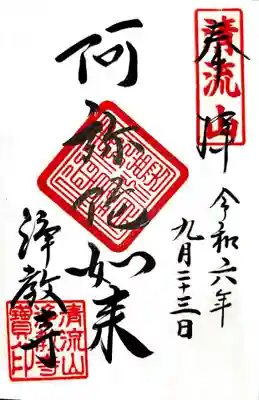 奉拝
清流山
令和六年
九月二十三日
阿弥陀如来
浄教寺
清流山
浄教寺
寶印